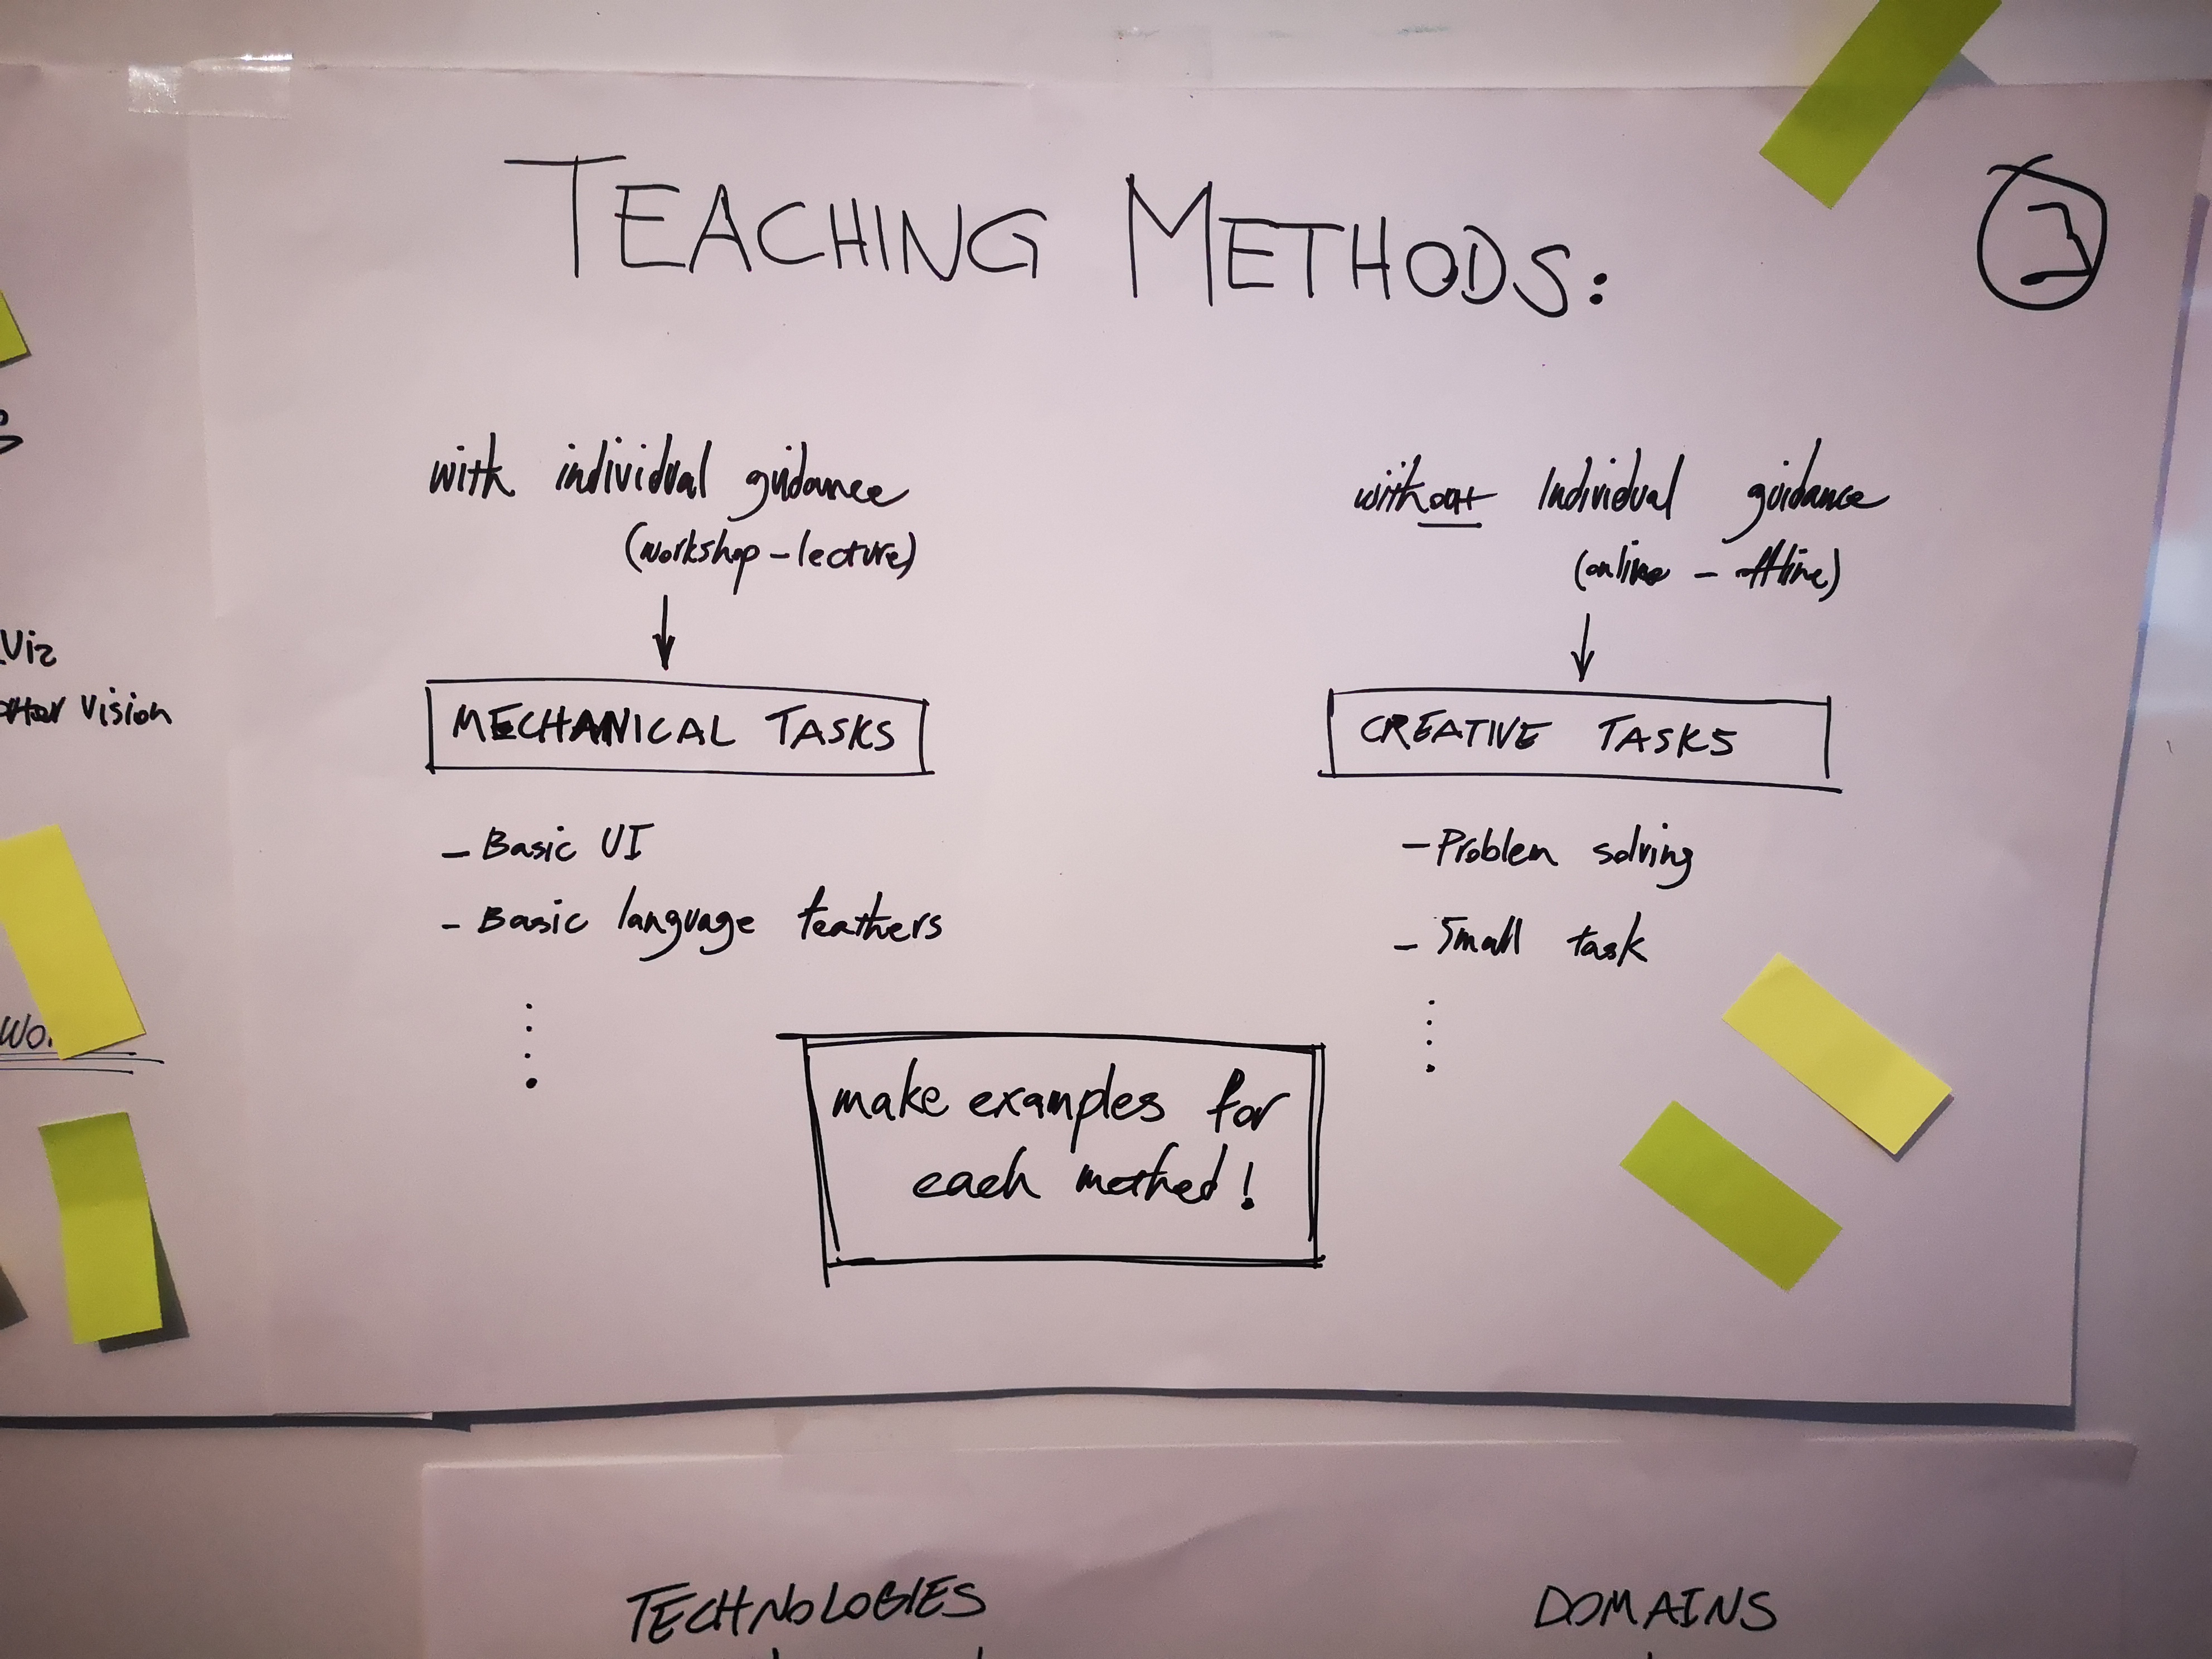 TEACHING METHODS:
with individual guidance
(workshop - lecture)
MECHANICAL TASKS
- Basic UI
- Basic language
without Individual guidance
(online - offline)
CREATIVE TASKS
- Problem solving
- Small task
make examples for
each method!
Viz
Vision
TECHNOLOGIES
DOMAINS